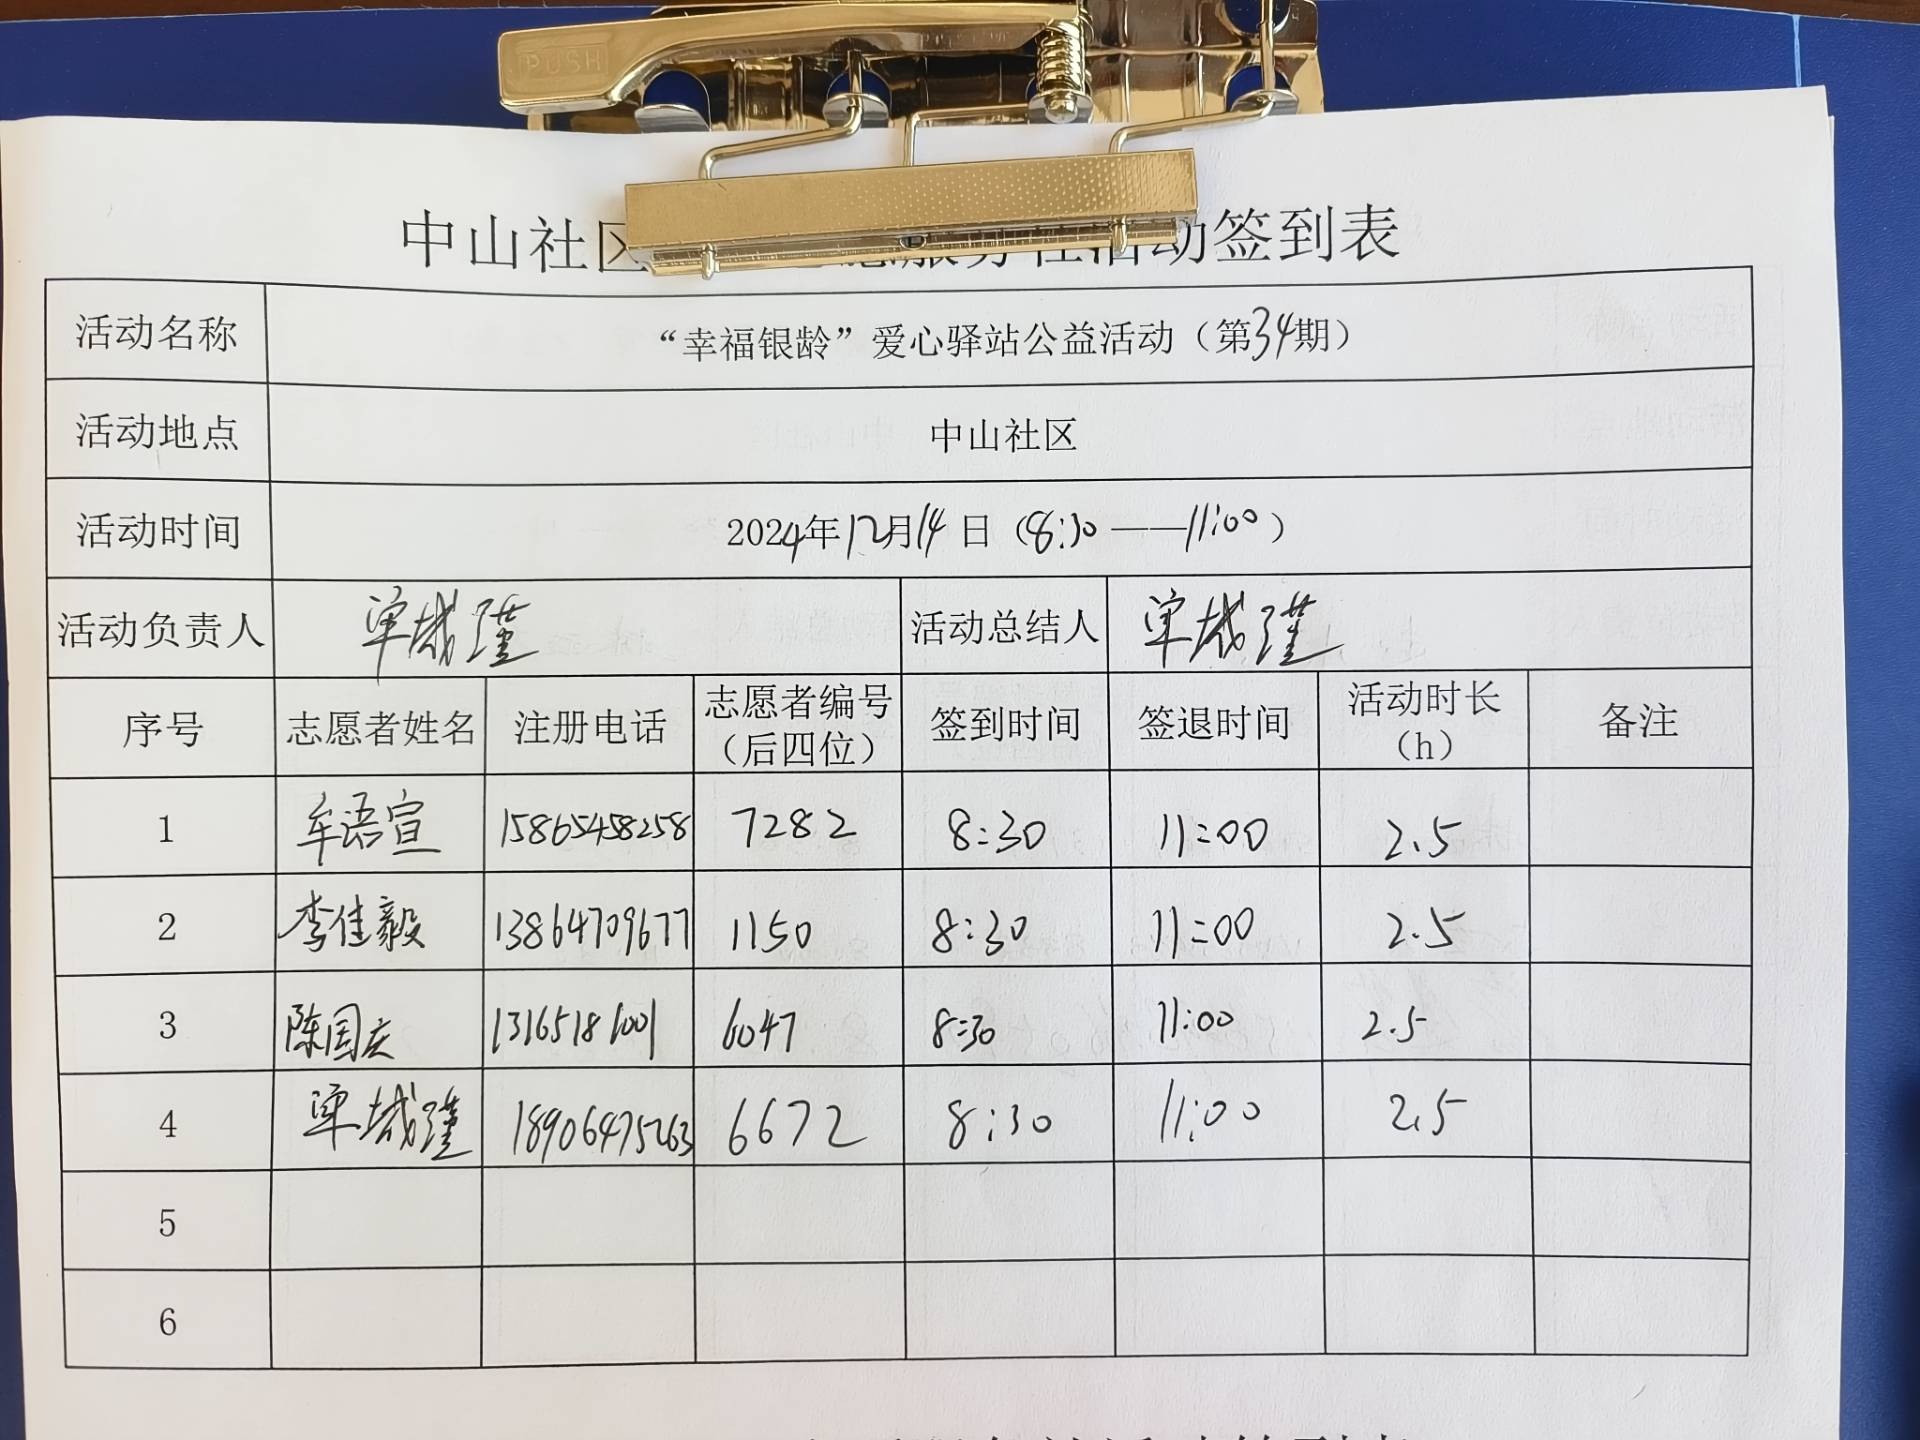 PUSH
中山社区 服务性活动签到表
活动名称 “幸福银龄”爱心驿站公益活动（第34期）
活动地点 中山社区
活动时间 2024年12月14日（8:30——11:00）
活动负责人 单城瑾 活动总结人 单城瑾
序号 志愿者姓名 注册电话 志愿者编号（后四位） 签到时间 签退时间 活动时长（h） 备注
1 牟语宣 15865458258 7282 8:30 11:00 2.5
2 李佳毅 13864709677 1150 8:30 11:00 2.5
3 陈国庆 13165181001 6047 8:30 11:00 2.5
4 单城瑾 18906475263 6672 8:30 11:00 2.5
5
6